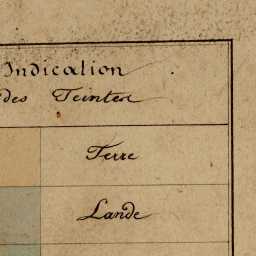 Indication
des Teintes
Terre
Lande